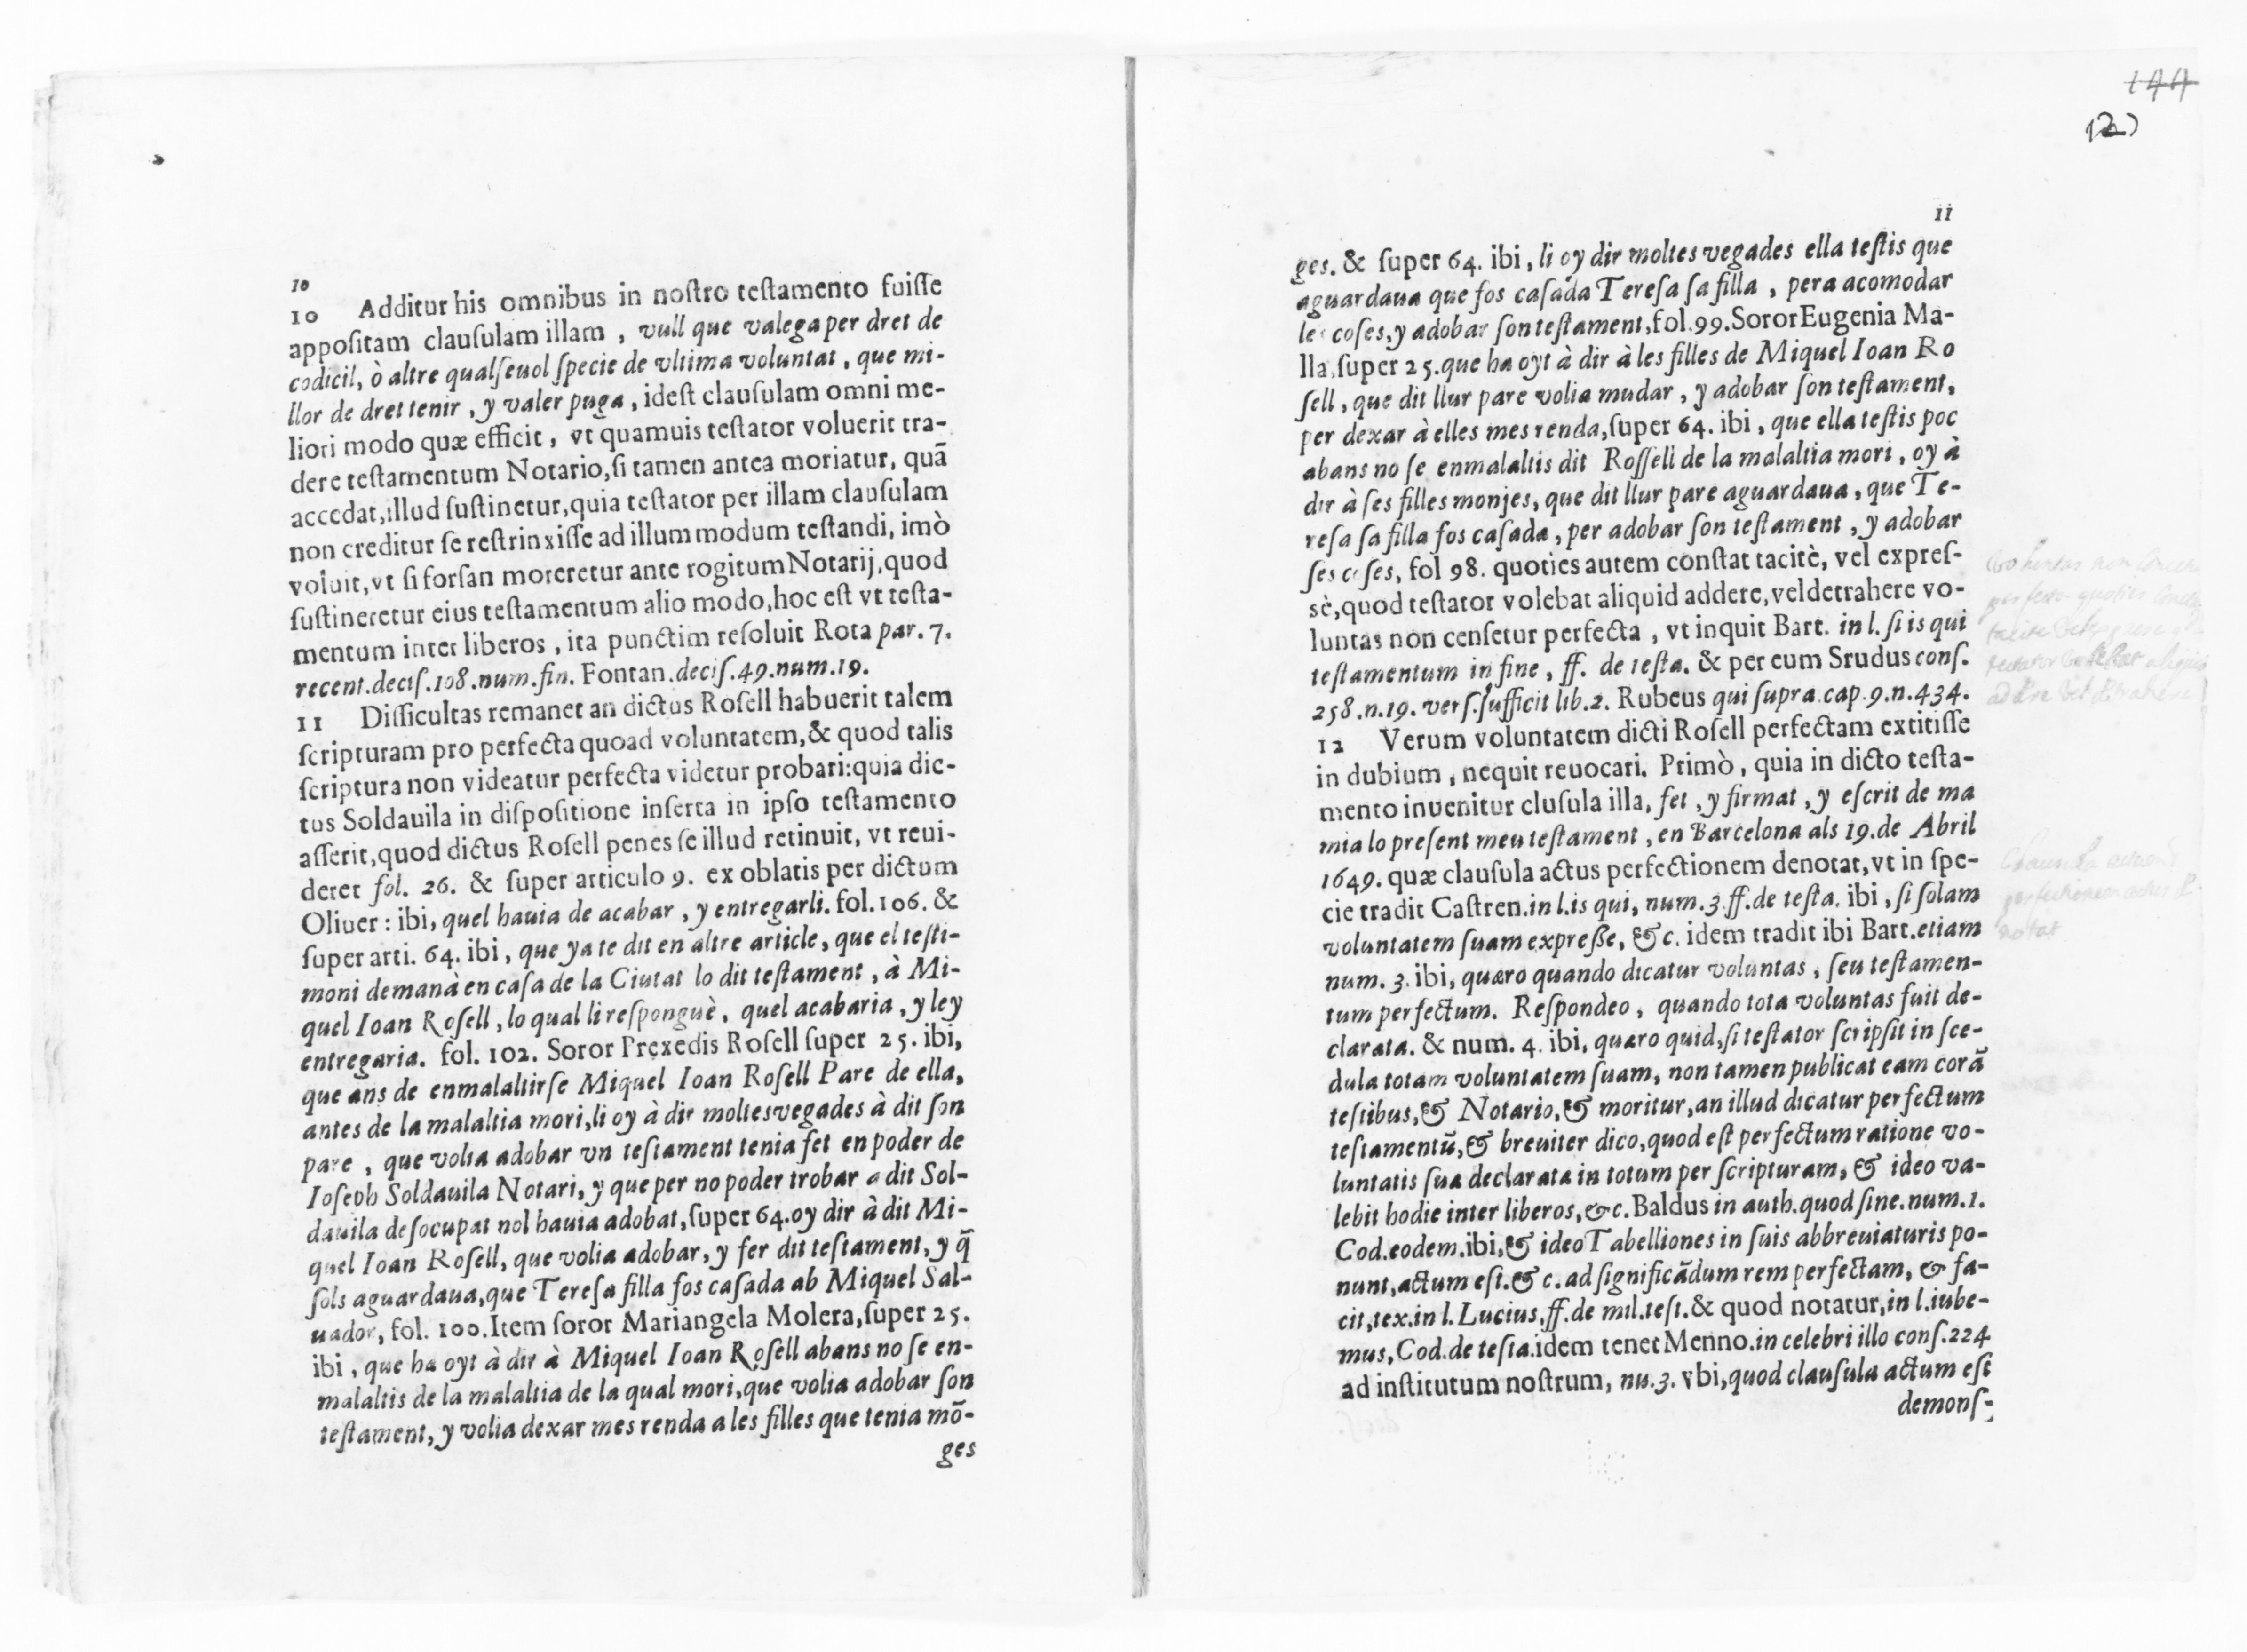 10
10 Additur his omnibus in nostro testamento fuisse
appositam clausulam illam, vull que valega per dret de
codicil, ò altre qualseuol specie de vltima voluntat, que mi-
llor de dret tenir, y valer puga, idest clausulam omni me-
liori modo quæ efficit, vt quamuis testator voluerit tra-
dere testamentum Notario, si tamen antea moriatur, quā
accedat, illud sustinetur, quia testator per illam clausulam
non creditur se restrinxisse ad illum modum testandi, imò
voluit, vt si forsan moreretur ante rogitum Notarij, quod
sustineretur eius testamentum alio modo, hoc est vt testa-
mentum inter liberos, ita punctim resoluit Rota par. 7.
recent. decis. 108. num. fin. Fontan. decis. 49. num. 19.
11 Difficultas remanet an dictus Rosell habuerit talem
scripturam pro perfecta quoad voluntatem, & quod talis
scriptura non videatur perfecta videtur probari: quia dic-
tus Soldauila in dispositione inserta in ipso testamento
asserit, quod dictus Rosell penes se illud retinuit, vt reui-
deret fol. 26. & super articulo 9. ex oblatis per dictum
Oliuer: ibi, quel hauia de acabar, y entregarli. fol. 106. &
super arti. 64. ibi, que ya te dit en altre article, que el testi-
moni demanà en casa de la Ciutat lo dit testament, à Mi-
quel Ioan Rosell, lo qual li responguè, quel acabaria, y ley
entregaria. fol. 102. Soror Prexedis Rosell super 25. ibi,
que ans de enmalaltirse Miquel Ioan Rosell Pare de ella,
antes de la malaltia mori, li oy à dir moltes vegades à dit son
pare, que volia adobar vn testament tenia fet en poder de
Ioseph Soldauila Notari, y que per no poder trobar a dit Sol-
dauila desocupat nol hauia adobat, super 64. oy dir à dit Mi-
quel Ioan Rosell, que volia adobar, y fer dit testament, y q̄
sols aguardaua, que Teresa filla fos casada ab Miquel Sal-
uador, fol. 100. Item soror Mariangela Molera, super 25.
ibi, que ha oyt à dir à Miquel Ioan Rosell abans no se en-
malaltis de la malaltia de la qual mori, que volia adobar son
testament, y volia dexar mes renda a les filles que tenia mō-
ges
144
11
ges. & super 64. ibi, li oy dir moltes vegades ella testis que
aguardaua que fos casada Teresa sa filla, pera acomodar
les coses, y adobar son testament, fol. 99. Soror Eugenia Ma-
lla, super 25. que ha oyt à dir à les filles de Miquel Ioan Ro
sell, que dit llur pare volia mudar, y adobar son testament,
per dexar à elles mes renda, super 64. ibi, que ella testis poc
abans no se enmalaltis dit Rossell de la malaltia mori, oy à
dir à ses filles monjes, que dit llur pare aguardaua, que Te-
resa sa filla fos casada, per adobar son testament, y adobar
ses coses, fol 98. quoties autem constat tacitè, vel expres-
sè, quod testator volebat aliquid addere, vel detrahere vo-
luntas non censetur perfecta, vt inquit Bart. in l. si is qui
testamentum in fine, ff. de testa. & per eum Srudus cons.
258. n. 19. vers. sufficit lib. 2. Rubeus qui supra. cap. 9. n. 434.
12 Verum voluntatem dicti Rosell perfectam extitisse
in dubium, nequit reuocari. Primò, quia in dicto testa-
mento inuenitur clusula illa, fet, y firmat, y escrit de ma
mia lo present meu testament, en Barcelona als 19. de Abril
1649. quæ clausula actus perfectionem denotat, vt in spe-
cie tradit Castren. in l. is qui, num. 3. ff. de testa. ibi, si solam
voluntatem suam expreße, &c. idem tradit ibi Bart. etiam
num. 3. ibi, quæro quando dicatur voluntas, seu testamen-
tum perfectum. Respondeo, quando tota voluntas fuit de-
clarata. & num. 4. ibi, quæro quid, si testator scripsit in sce-
dula totam voluntatem suam, non tamen publicat eam corā
testibus, & Notario, & moritur, an illud dicatur perfectum
testamentū, & breuiter dico, quod est perfectum ratione vo-
luntatis sua declarata in totum per scripturam, & ideo va-
lebit hodie inter liberos, &c. Baldus in auth. quod sine. num. 1.
Cod. eodem. ibi, & ideo Tabelliones in suis abbreuiaturis po-
nunt, actum est. & c. ad significādum rem perfectam, & fa-
cit, tex. in l. Lucius, ff. de mil. test. & quod notatur, in l. iube-
mus, Cod. de testa. idem tenet Menno. in celebri illo cons. 224
ad institutum nostrum, nu. 3. vbi, quod clausula actum est
demons-